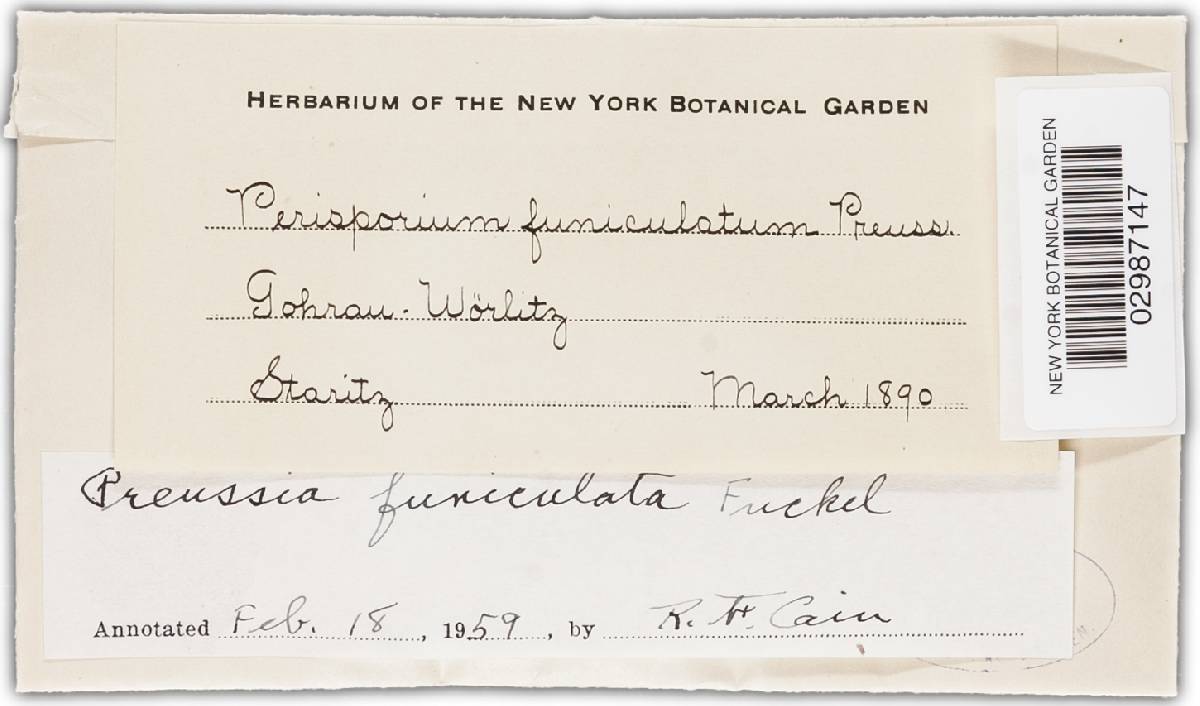 HERBARIUM OF THE NEW YORK BOTANICAL GARDEN
Perisporium funiculatum Preuss.
Gohrau-Wörlitz
Staritz March 1890
NEW YORK BOTANICAL GARDEN
02987147
Preussia funiculata Fuckel
Annotated Feb. 18, 1959, by R. F. Cain